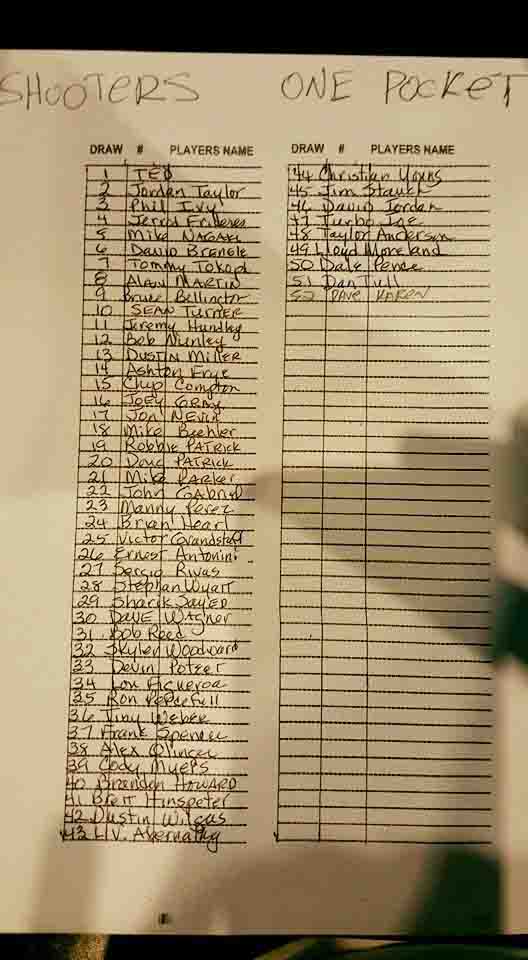 SHOOTERS ONE POCKET
DRAW # PLAYERS NAME
1 TED
2 Jordan Taylor
3 Phil Ivy
4 Jerrod
5 Mike NAGAKI
6 DAVID Brengle
7 Tommy Tokoph
8 ALAN MARTIN
9 Bruce Bellington
10 SEAN TURNER
11 Jeremy Hundley
12 Bob Nunley
13 DUSTIN Miller
14 Ashton Frye
15 Chip Compton
16 JOEY GRAY
17 JON NEVIN
18 Mike Beehler
19 Robbie PATRICK
20 Doug PATRICK
21 Mike PARKER
22 John GABRIEL
23 Manny Perez
24 Brian Hearl
25 Victor Grandstaff
26 Ernest Antonini
27 Sergio Rivas
28 Stephan Wyatt
29 Sharik SAYED
30 DAVE WAGNER
31 Bob Reed
32 Skyler Woodward
33 Devin Poteet
34 Lou Figueroa
35 Ron Peacefull
36 Tiny Weber
37 Frank Spencer
38 Alex Olinger
39 Cody Myers
40 Brandon HOWARD
41 Brett Hinspeter
42 Dustin Wilgus
43 L.V. Abernathy
DRAW # PLAYERS NAME
44 Christian Youngs
45 Jim Stauch
46 David Jordan
47 Turbo Ige
48 Taylor Anderson
49 Lloyd Moreland
50 Dale Pence
51 Dan Tull
52 DAVE KAREN